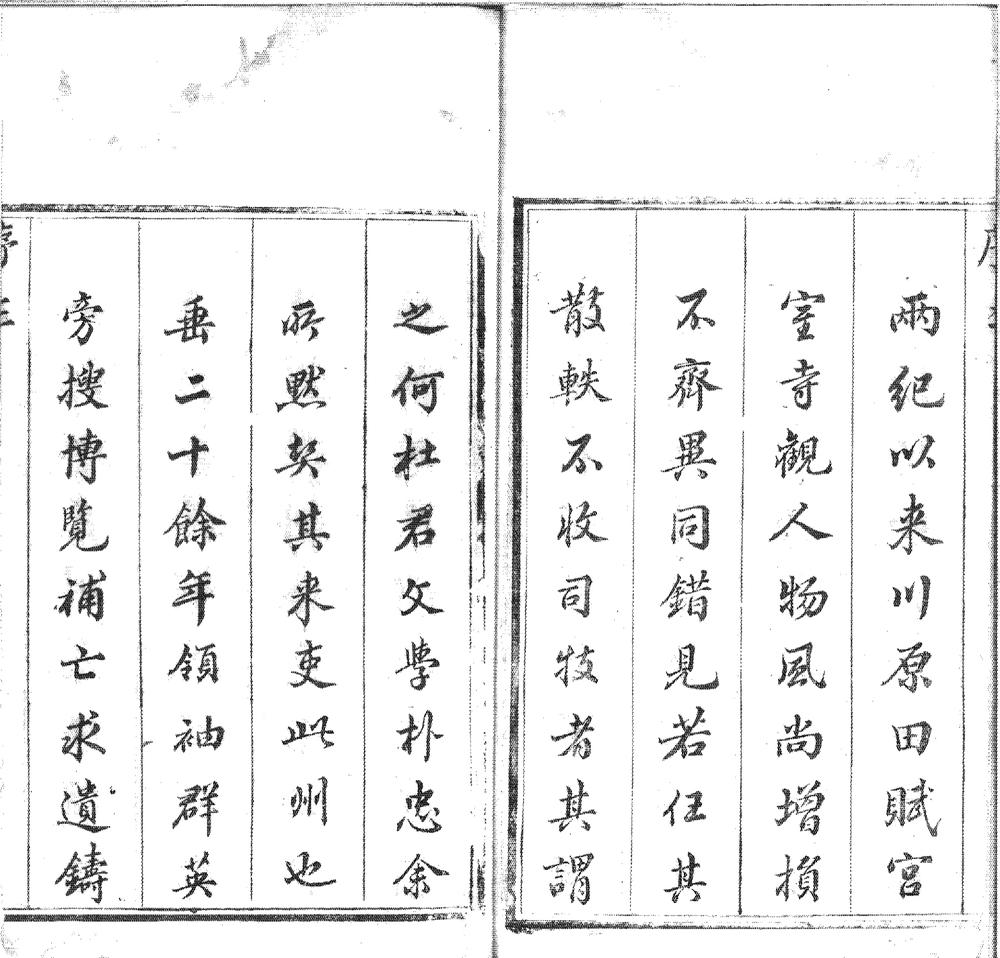 兩紀以来川原田賦宮
室寺觀人物風尚增損
不齊異同錯見若任其
散軼不收司牧者其謂
之何杜君文學朴忠余
所默契其来吏此州也
垂二十餘年領袖群英
旁搜博覽補亡求遺鑄